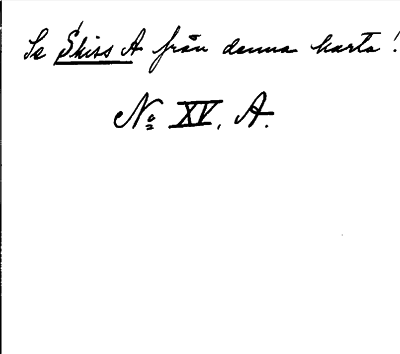 Se Skiss A från denna karta!
No XV. A.